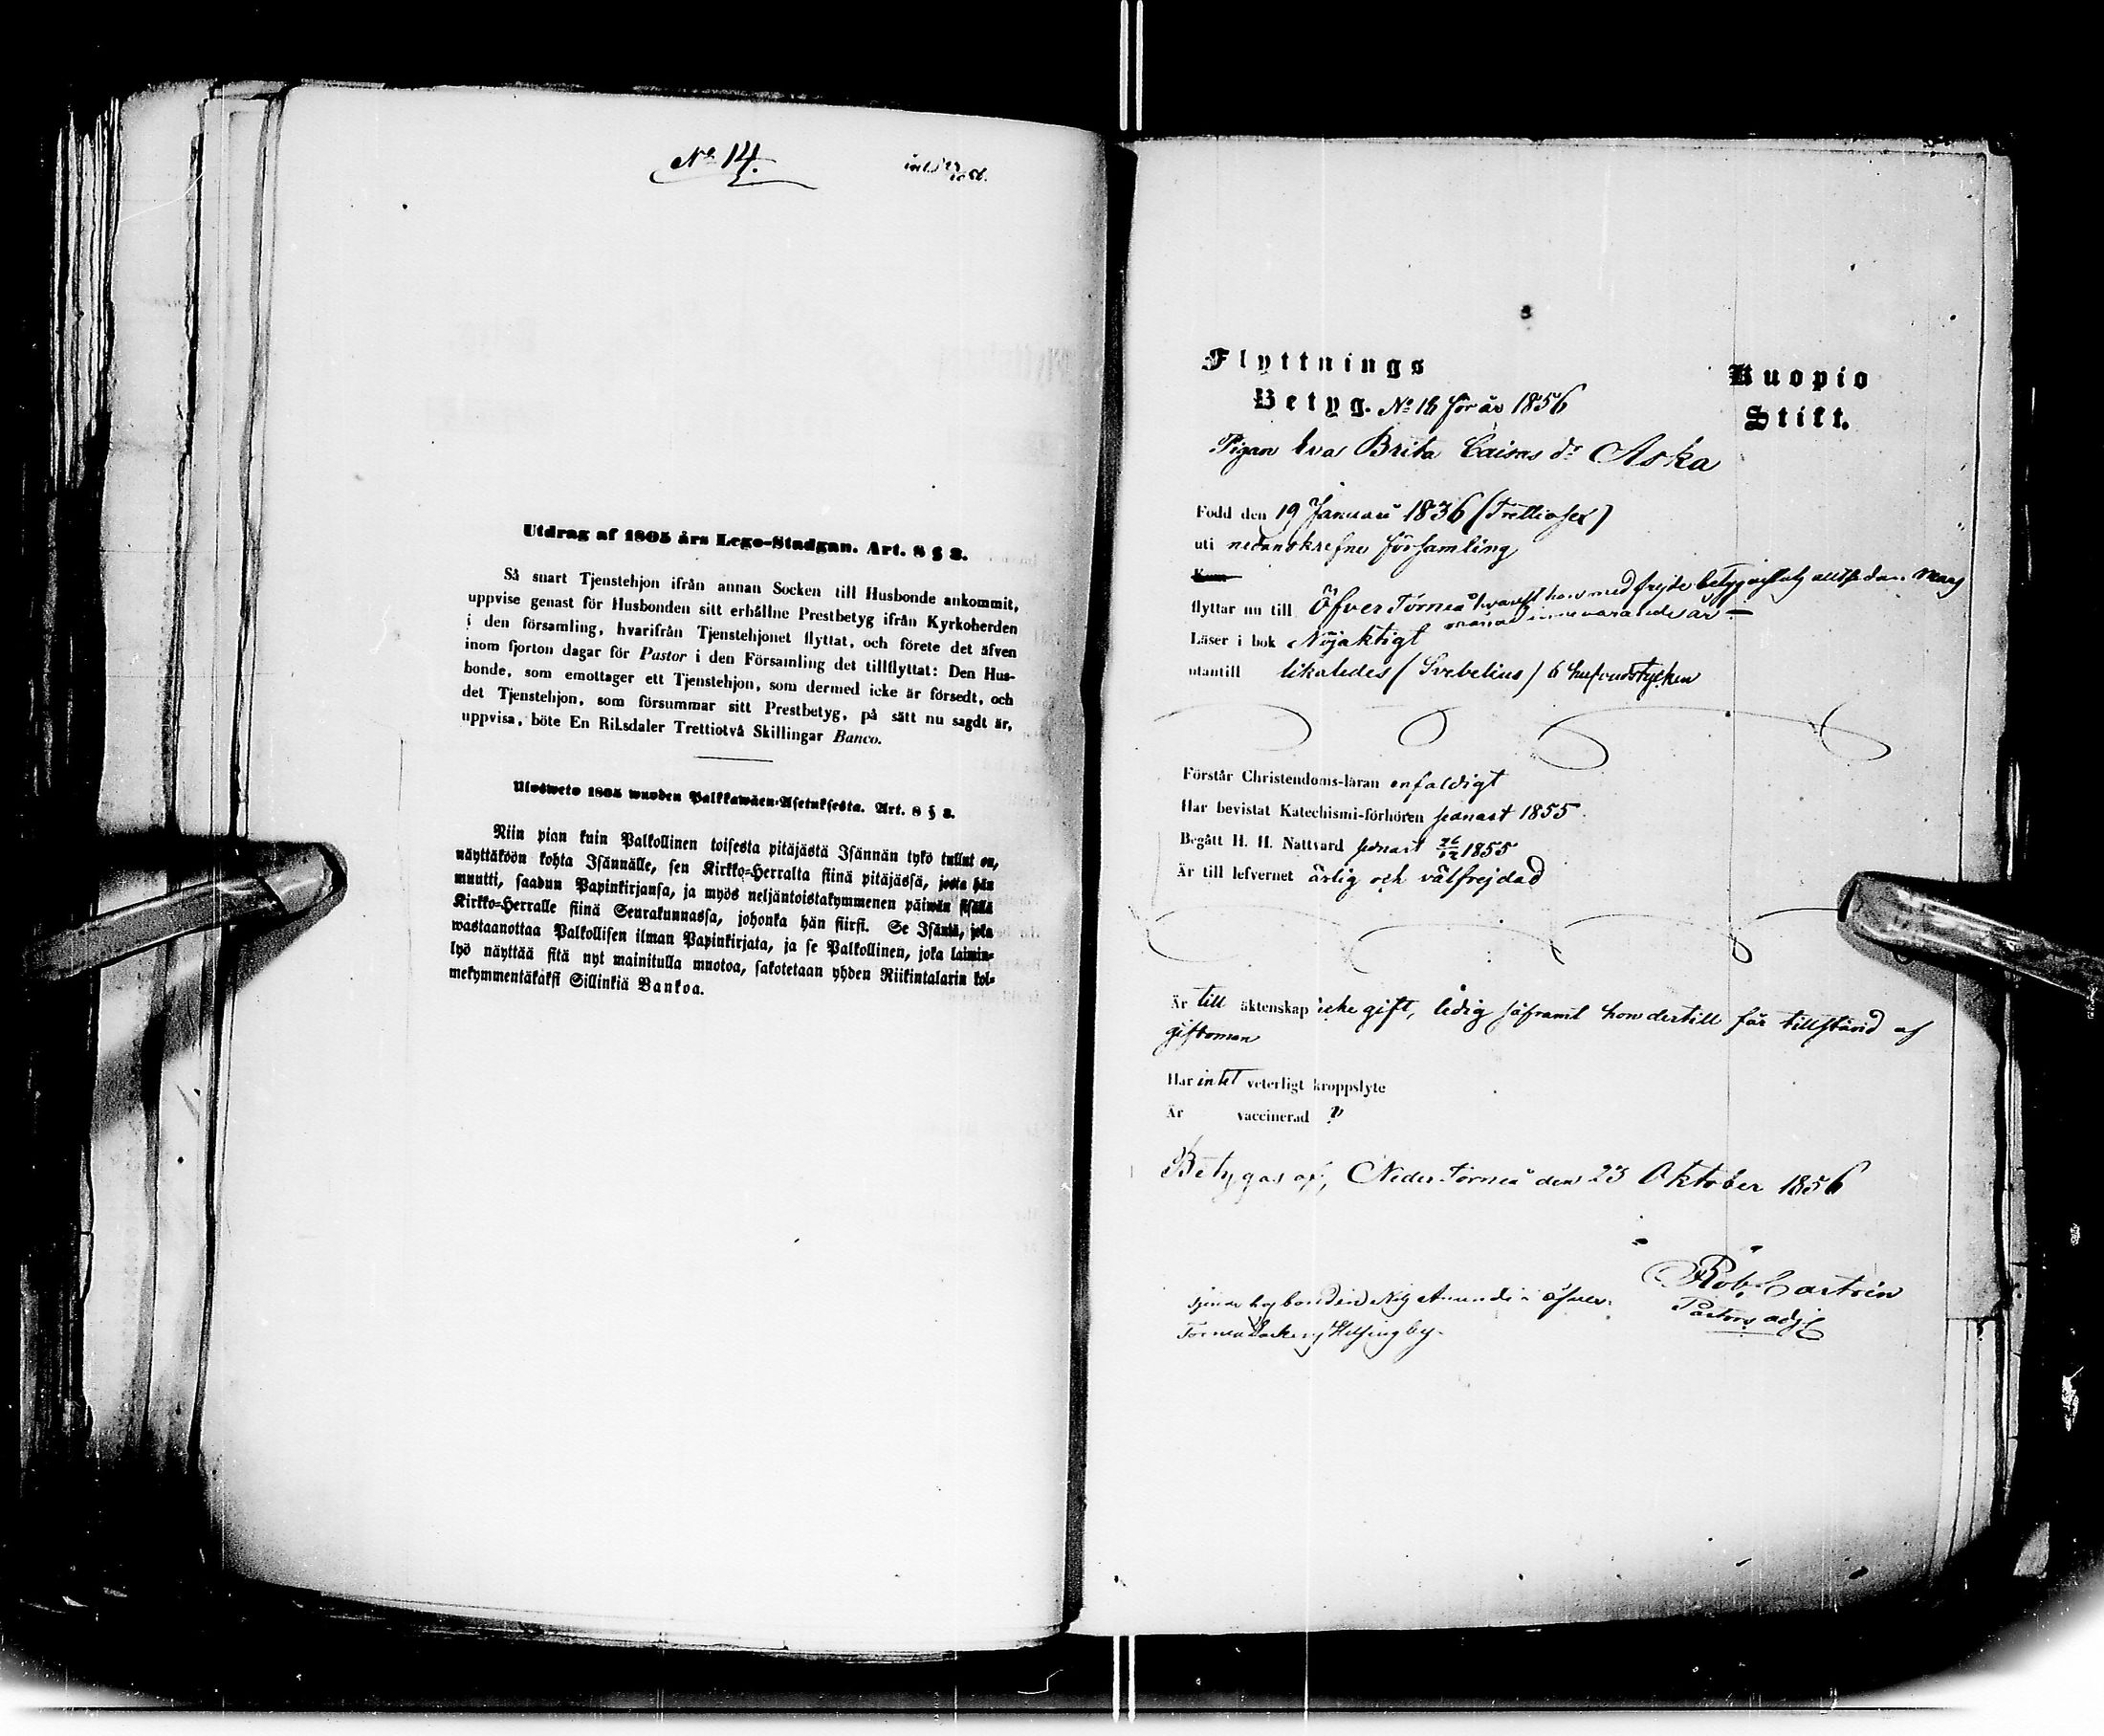 No 14.
Utdrag af 1805 års Lego-Stadgan. Art. 8 § 8.
Så snart Tjenstehjon ifrån annan Socken till Husbonde ankommit,
uppvise genast för Husbonden sitt erhållne Prestbetyg ifrån Kyrkoherden
i den församling, hvarifrån Tjenstehjonet flyttat, och förete det äfven
inom fjorton dagar för Pastor i den Församling det tillflyttat: Den Hus-
bonde, som emottager ett Tjenstehjon, som dermed icke är försedt, och
det Tjenstehjon, som försummar sitt Prestbetyg, på sätt nu sagdt är,
uppvisa, böte En Riksdaler Trettiotvå Skillingar Banco.
Ulosweto 1805 wuoden Palkkawäen-Asetuksesta. Art. 8 § 8.
Niin pian kuin Palkollinen toisesta pitäjästä Isännän tykö tullut on,
näyttäköön kohta Isännälle, sen Kirkko-Herralta siinä pitäjässä, josta hän
muutti, saadun Papinkirjansa, ja myös neljäntoistakymmenen päiwän sisällä
Kirkko-Herralle siinä Seurakunnassa, johonka hän siirsi. Se Isäntä, joka
wastaanottaa Palkollisen ilman Papinkirjata, ja se Palkollinen, joka laimin-
lyö näyttää sitä nyt mainitulla muotoa, sakotetaan yhden Riikintalarin kol-
mekymmentäkaksi Sillinkiä Bankoa.
Flyttnings
Betyg. No 16 för år 1856
Kuopio
Stift.
Pigan Eva Brita Caisas dr Aska
Född den 19 Januari 1836 (Trettiosex)
uti nedanskrefne församling
flyttar nu till Öfver Torneå hvarest hon med frejde betyg allt sedan Marj
månad innevarande år
Läser i bok Nöjaktigt
utantill likaledes (Svebelius) 6 hufvudstycken
Förstår Christendoms-läran enfaldigt
Har bevistat Katechismi-förhören sednast 1855
Begått H. H. Nattvard sednast 26/12 1855
Är till lefvernet ärlig och välfrejdad
Är till äktenskap icke gift, ledig såframt hon dertill får tillstånd af
giftoman
Har intet veterligt kroppslyte
Är vaccinerad
Betygas af, Neder Torneå den 23 Oktober 1856
Rob. Castrén
Pastors adj
tjenar hos bonden Nils Amundi i Öfver
Torneå Socken Helsingby.